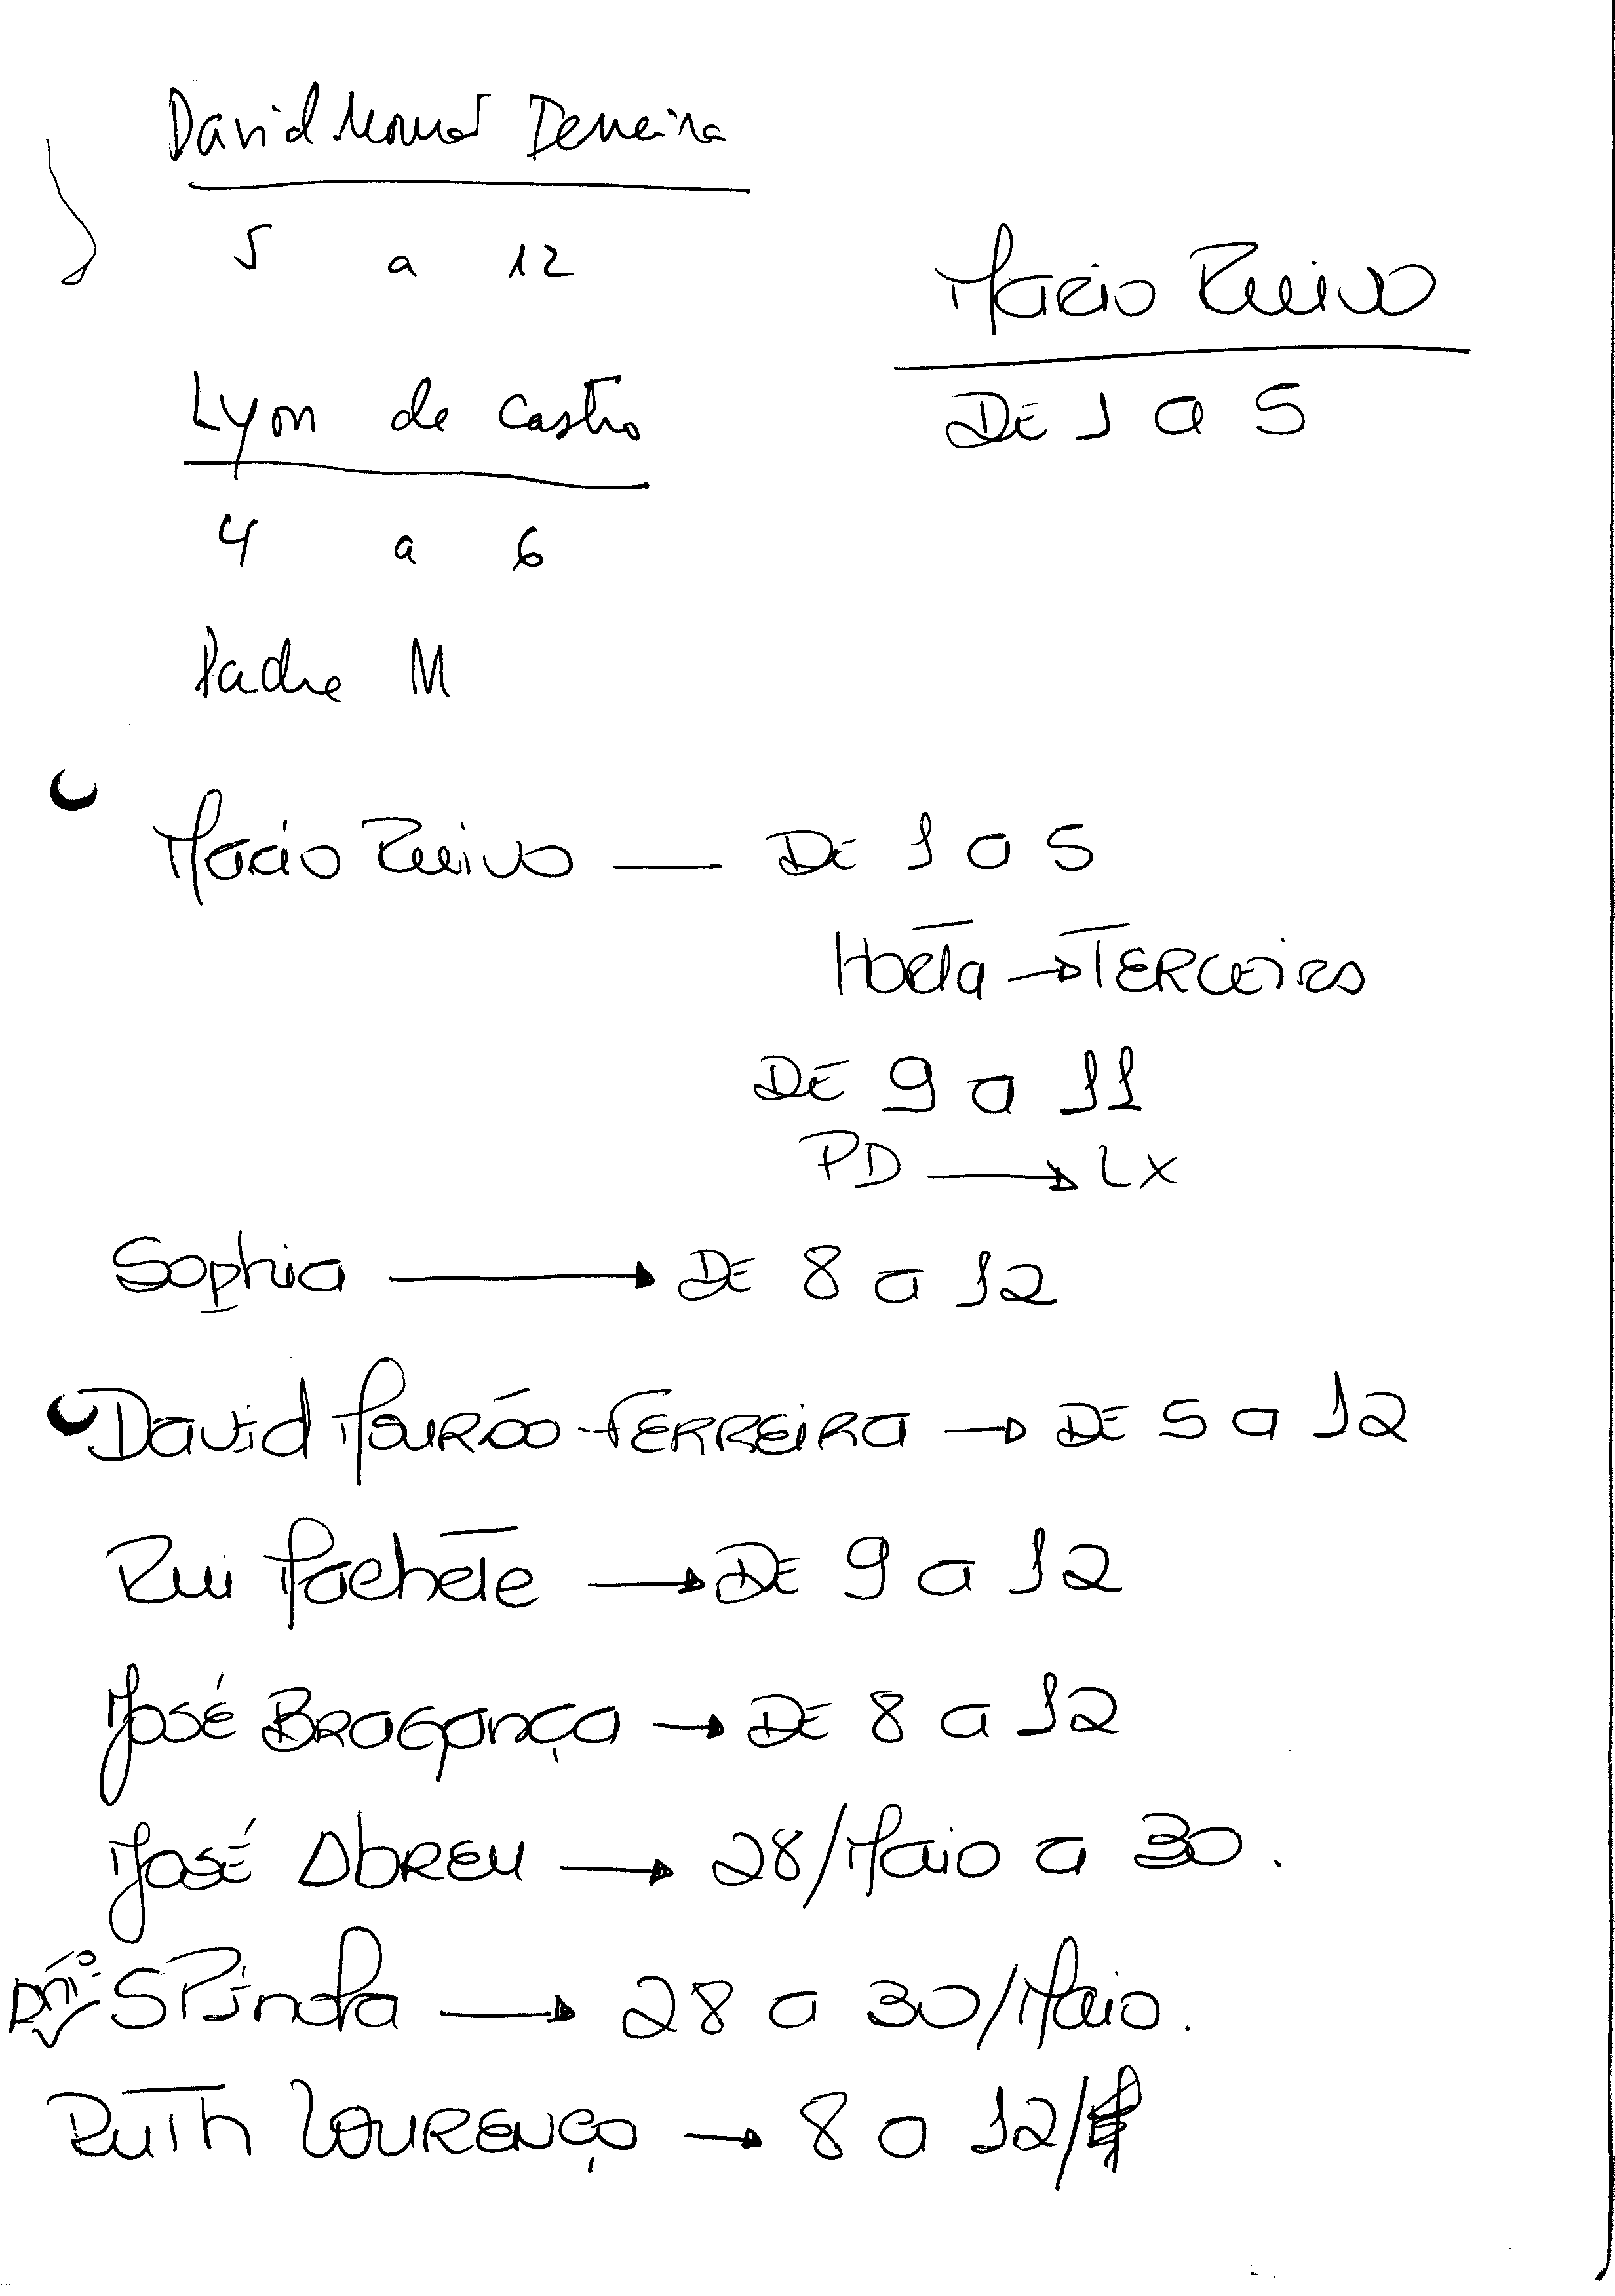 David Mourão Ferreira
5 a 12
Mário Ruivo
DE 1 a 5
Lyon de Castro
4 a 6
Padre M
Mário Ruivo — DE 1 a 5
Horta → TERCEIRA
DE 9 a 11
PD → LX
Sophia → DE 8 a 12
David MOURÃO-FERREIRA → DE 5 a 12
Rui Machete → DE 9 a 12
José BRAGANÇA → DE 8 a 12
José ABREU → 28/Maio a 30.
SPÍNOLA → 28 a 30/Maio.
RUTH LOURENÇO → 8 a 12/